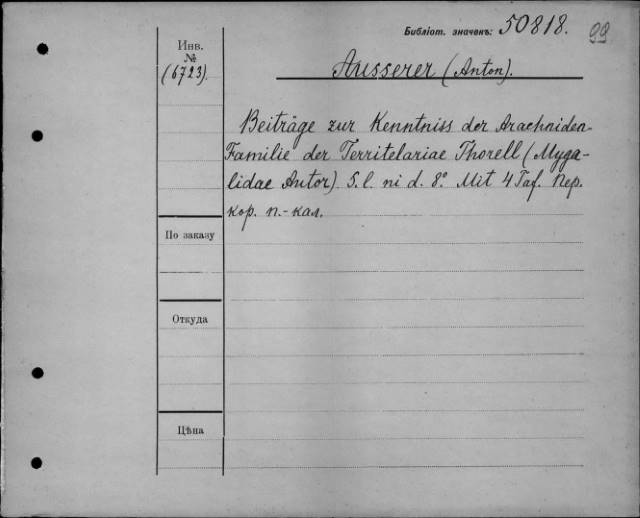 Библіот. значекъ: 50818. 99
Инв.
№
(6723).
Ausserer (Anton).
Beiträge zur Kenntniss der Arachniden-
Familie der Territelariae Thorell (Myga-
lidae Autor) S. l. ni d. 8º. Mit 4 Taf. Пер.
кор. п.-кал.
По заказу
Откуда
Цѣна